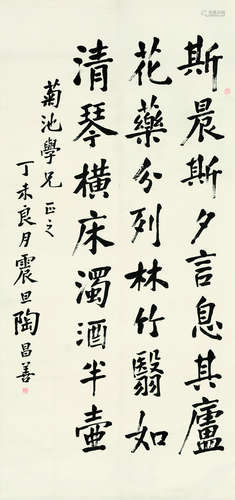 斯晨斯夕言息其廬
花藥分列林竹翳如
清琴橫床濁酒半壺
菊池學兄正之
丁未良月震旦陶昌善